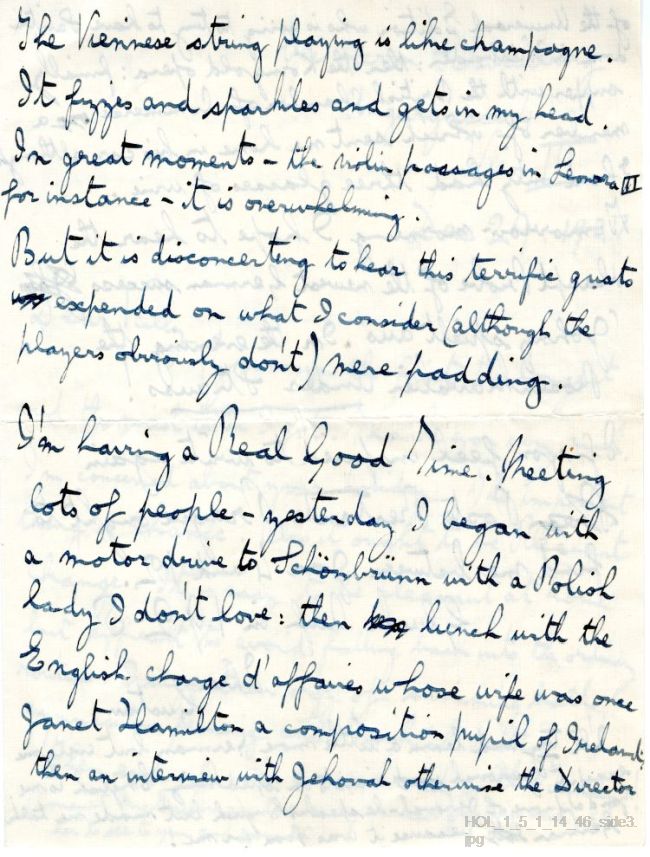 The Viennese string playing is like champagne.
It fizzes and sparkles and gets in my head.
In great moments – the violin passages in Leonora III
for instance – it is overwhelming.
But it is disconcerting to hear this terrific gusts
expended on what I consider (although the
players obviously don't) mere padding.
I'm having a Real Good Time. Meeting
lots of people – yesterday I began with
a motor drive to Schönbrünn with a Polish
lady I don't love: then lunch with the
English charge d'affaires whose wife was once
Janet Hamilton a composition pupil of Ireland;
then an interview with Jehovah otherwise the Director
HOL_1_5_1_14_46_side3.
jpg